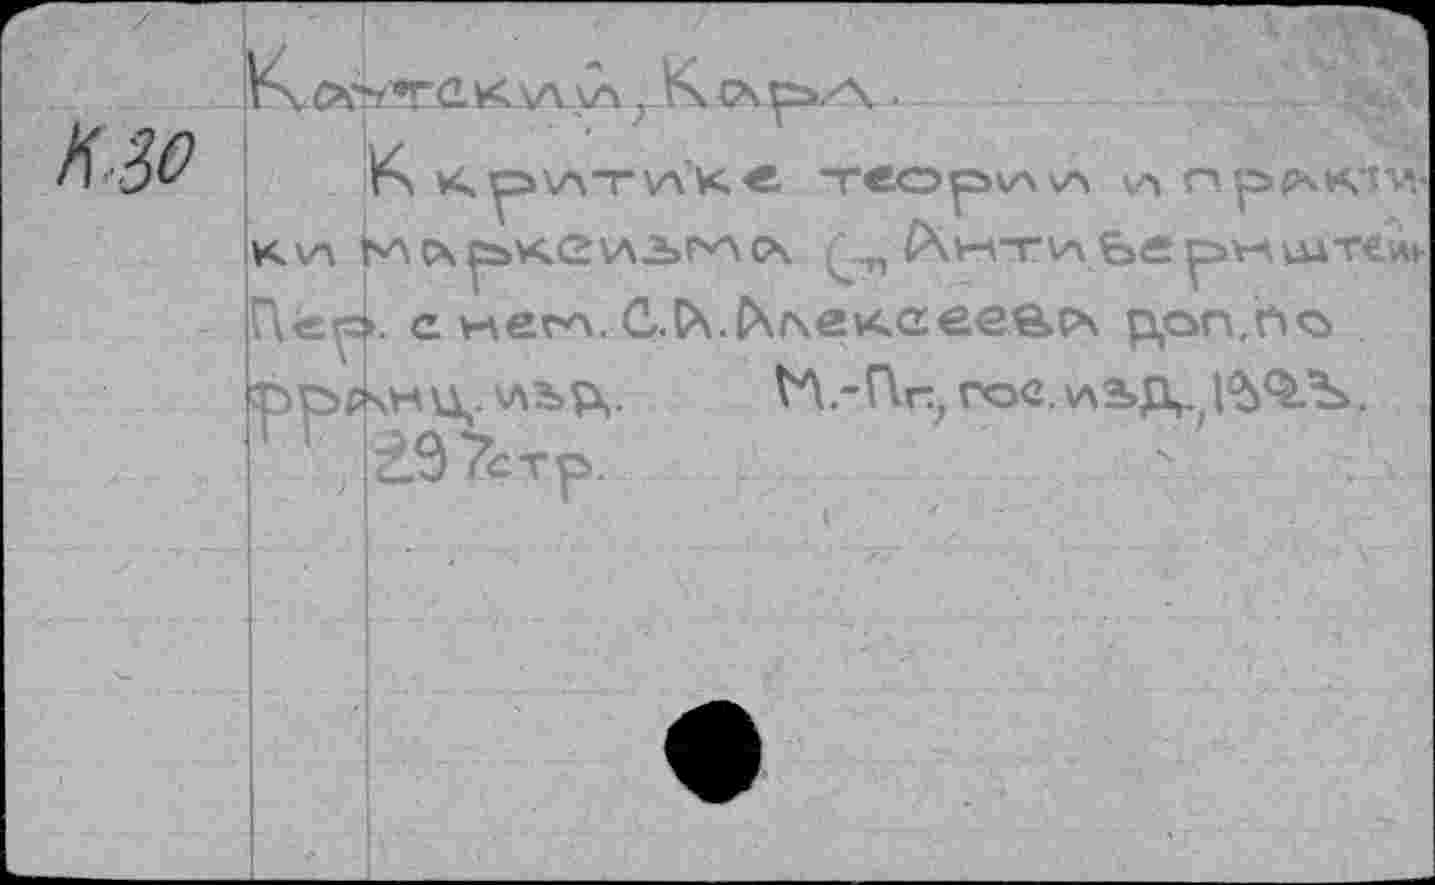 Каутский, Карл.
К.30
К критике теории и практи-
ки марксизма („Антибернштейн
Пер. с нем. С.А.Алексеева доп.по
франц. изд. М.-Пг., гос.изд., 1923.
297стр.